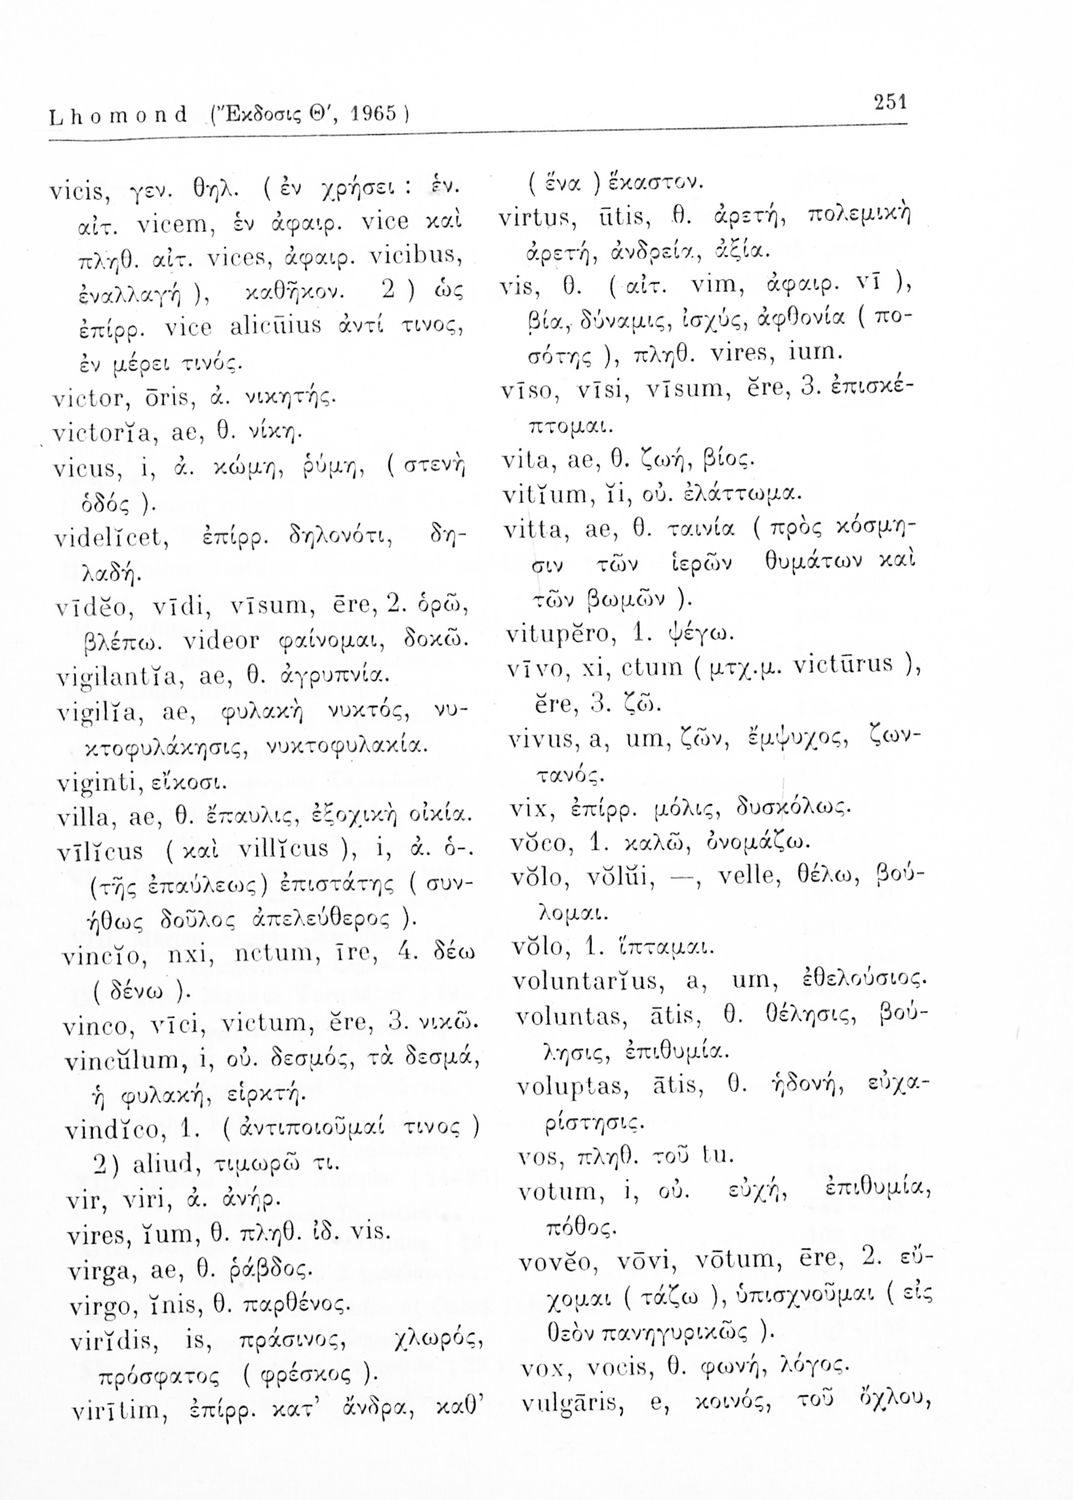 Lhomond (Ἔκδοσις Θ′, 1965)
251
vicis, γεν. θηλ. ( ἐν χρήσει : ἑν.
αἰτ. vicem, ἑν ἀφαιρ. vice καὶ
πληθ. αἰτ. vices, ἀφαιρ. vicibus,
ἐναλλαγή ), καθῆκον. 2 ) ὡς
ἐπίρρ. vice alicūius ἀντί τινος,
ἐν μέρει τινός.
victor, ōris, ἀ. νικητής.
victorĭa, ae, θ. νίκη.
vicus, i, ἀ. κώμη, ῥύμη, ( στενὴ
ὁδός ).
videlĭcet, ἐπίρρ. δηλονότι, δη-
λαδή.
vīdĕo, vīdi, vīsum, ēre, 2. ὁρῶ,
βλέπω. videor φαίνομαι, δοκῶ.
vigilantĭa, ae, θ. ἀγρυπνία.
vigilĭa, ae, φυλακὴ νυκτός, νυ-
κτοφυλάκησις, νυκτοφυλακία.
viginti, εἴκοσι.
villa, ae, θ. ἔπαυλις, ἐξοχικὴ οἰκία.
vīlĭcus ( καὶ villĭcus ), i, ἀ. ὁ-.
(τῆς ἐπαύλεως) ἐπιστάτης ( συν-
ήθως δοῦλος ἀπελεύθερος ).
vincĭo, nxi, nctum, īre, 4. δέω
( δένω ).
vinco, vīci, victum, ĕre, 3. νικῶ.
vincŭlum, i, οὐ. δεσμός, τὰ δεσμά,
ἡ φυλακή, εἱρκτή.
vindĭco, 1. ( ἀντιποιοῦμαί τινος )
2) aliud, τιμωρῶ τι.
vir, viri, ἀ. ἀνήρ.
vires, ĭum, θ. πληθ. ἰδ. vis.
virga, ae, θ. ῥάβδος.
virgo, ĭnis, θ. παρθένος.
virĭdis, is, πράσινος, χλωρός,
πρόσφατος ( φρέσκος ).
virītim, ἐπίρρ. κατ’ ἄνδρα, καθ’
( ἕνα ) ἕκαστον.
virtus, ūtis, θ. ἀρετή, πολεμικὴ
ἀρετή, ἀνδρεία, ἀξία.
vis, θ. ( αἰτ. vim, ἀφαιρ. vī ),
βία, δύναμις, ἰσχύς, ἀφθονία ( πο-
σότης ), πληθ. vires, ium.
vīso, vīsi, vīsum, ĕre, 3. ἐπισκέ-
πτομαι.
vita, ae, θ. ζωή, βίος.
vitĭum, ĭi, οὐ. ἐλάττωμα.
vitta, ae, θ. ταινία ( πρὸς κόσμη-
σιν τῶν ἱερῶν θυμάτων καὶ
τῶν βωμῶν ).
vitupĕro, 1. ψέγω.
vīvo, xi, ctum ( μτχ.μ. victūrus ),
ĕre, 3. ζῶ.
vivus, a, um, ζῶν, ἔμψυχος, ζων-
τανός.
vix, ἐπίρρ. μόλις, δυσκόλως.
vŏco, 1. καλῶ, ὀνομάζω.
vŏlo, vŏlŭi, —, velle, θέλω, βού-
λομαι.
vŏlo, 1. ἵπταμαι.
voluntarĭus, a, um, ἐθελούσιος.
voluntas, ātis, θ. θέλησις, βού-
λησις, ἐπιθυμία.
voluptas, ātis, θ. ἡδονή, εὐχα-
ρίστησις.
vos, πληθ. τοῦ tu.
votum, i, οὐ. εὐχή, ἐπιθυμία,
πόθος.
vovĕo, vōvi, vōtum, ēre, 2. εὔ-
χομαι ( τάζω ), ὑπισχνοῦμαι ( εἰς
θεὸν πανηγυρικῶς ).
vox, vocis, θ. φωνή, λόγος.
vulgāris, e, κοινός, τοῦ ὄχλου,